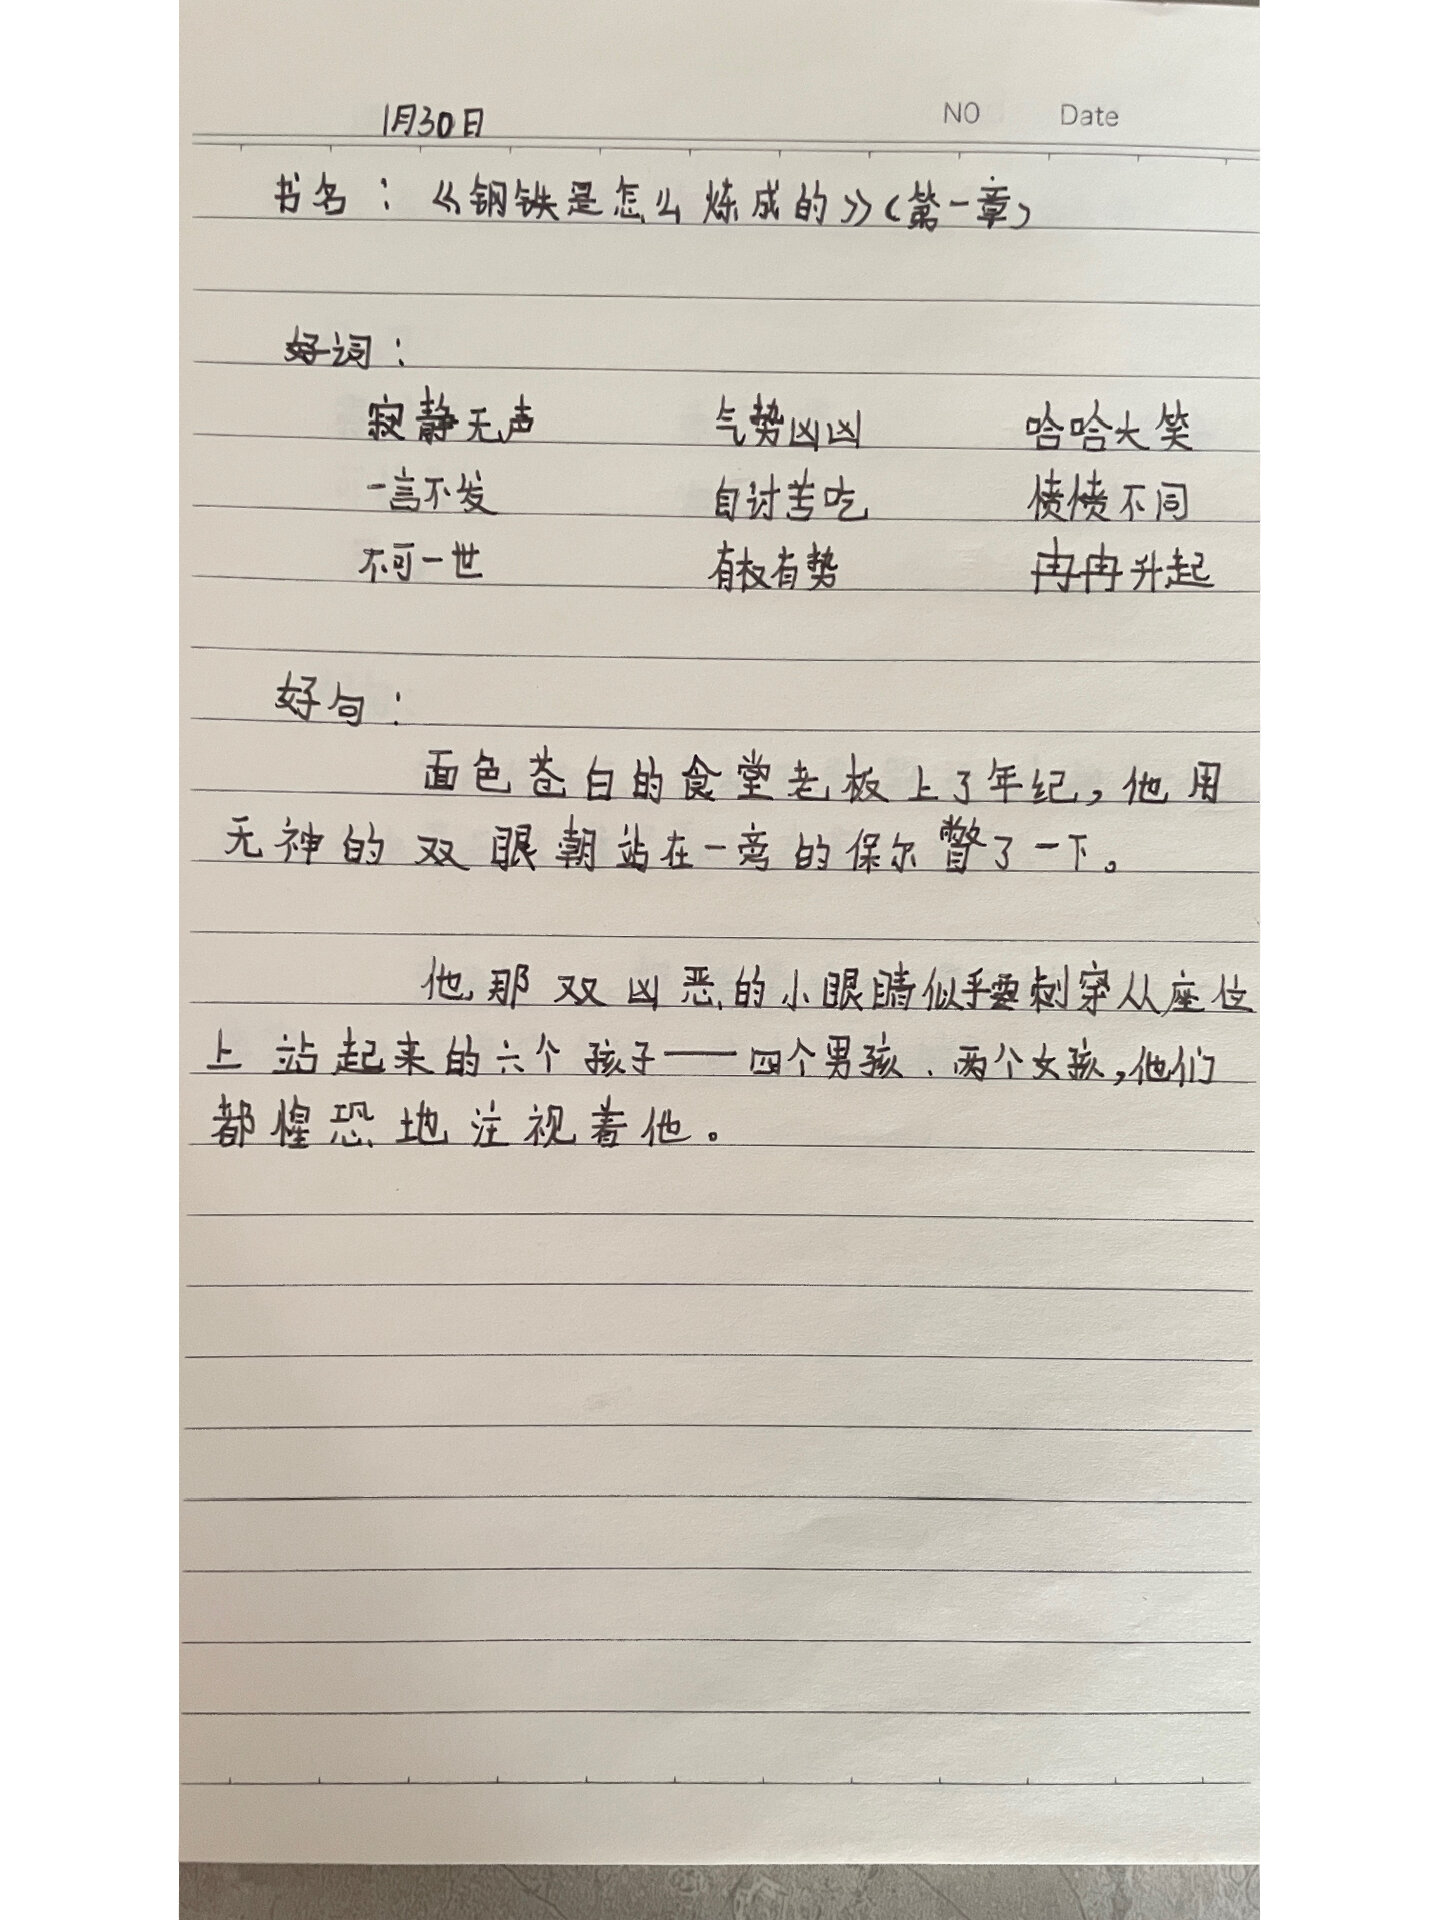 1月30日 NO Date
书名：《钢铁是怎么炼成的》（第一章）
好词：
寂静无声 气势凶凶 哈哈大笑
一言不发 自讨苦吃 愤愤不同
不可一世 有板有势 冉冉升起
好句：
面色苍白的食堂老板上了年纪，他用
无神的双眼朝站在一旁的保尔瞥了一下。
他那双凶恶的小眼睛似乎要刺穿从座位
上站起来的六个孩子——四个男孩、两个女孩，他们
都惶恐地注视着他。